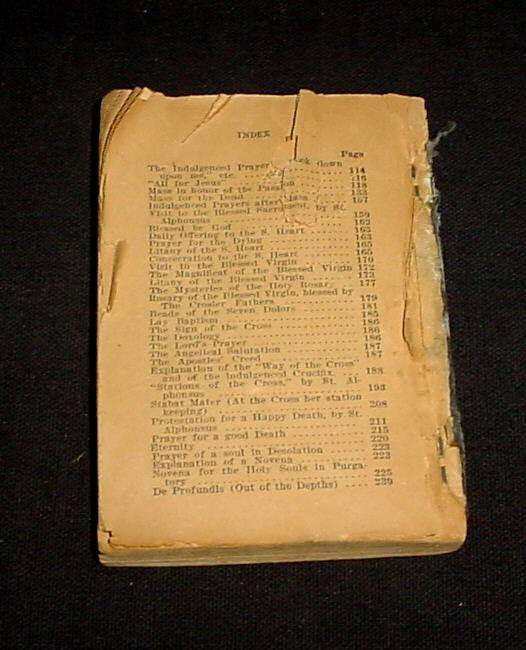 INDEX
Page
The Indulgenced Prayer down
upon me," etc. 114
"All for Jesus" 116
Mass in honor of the Passion 118
Mass for the Dead 133
Indulgenced Prayers after Mass 157
Visit to the Blessed Sacrament, by St.
Alphonsus 159
Blessed be God 162
Daily Offering to the S. Heart 163
Prayer for the Dying 163
Litany of the S. Heart 165
Consecration to the S. Heart 165
Visit to the Blessed Virgin 170
The Magnificat of the Blessed Virgin 172
Litany of the Blessed Virgin 173
The Mysteries of the Holy Rosary 177
Rosary of the Blessed Virgin, blessed by
The Crosier Fathers 179
Beads of the Seven Dolors 181
Lay Baptism 185
The Sign of the Cross 186
The Doxology 186
The Lord's Prayer 186
The Angelical Salutation 187
The Apostles' Creed 187
Explanation of the "Way of the Cross"
and of the Indulgenced Crucifix 188
"Stations of the Cross," by St. Al-
phonsus 193
Stabat Mater (At the Cross her station
keeping) 208
Protestation for a Happy Death, by St.
Alphonsus 211
Prayer for a good Death 215
Eternity 220
Prayer of a soul in Desolation 223
Explanation of a Novena 223
Novena for the Holy Souls in Purga-
tory 225
De Profundis (Out of the Depths) 239